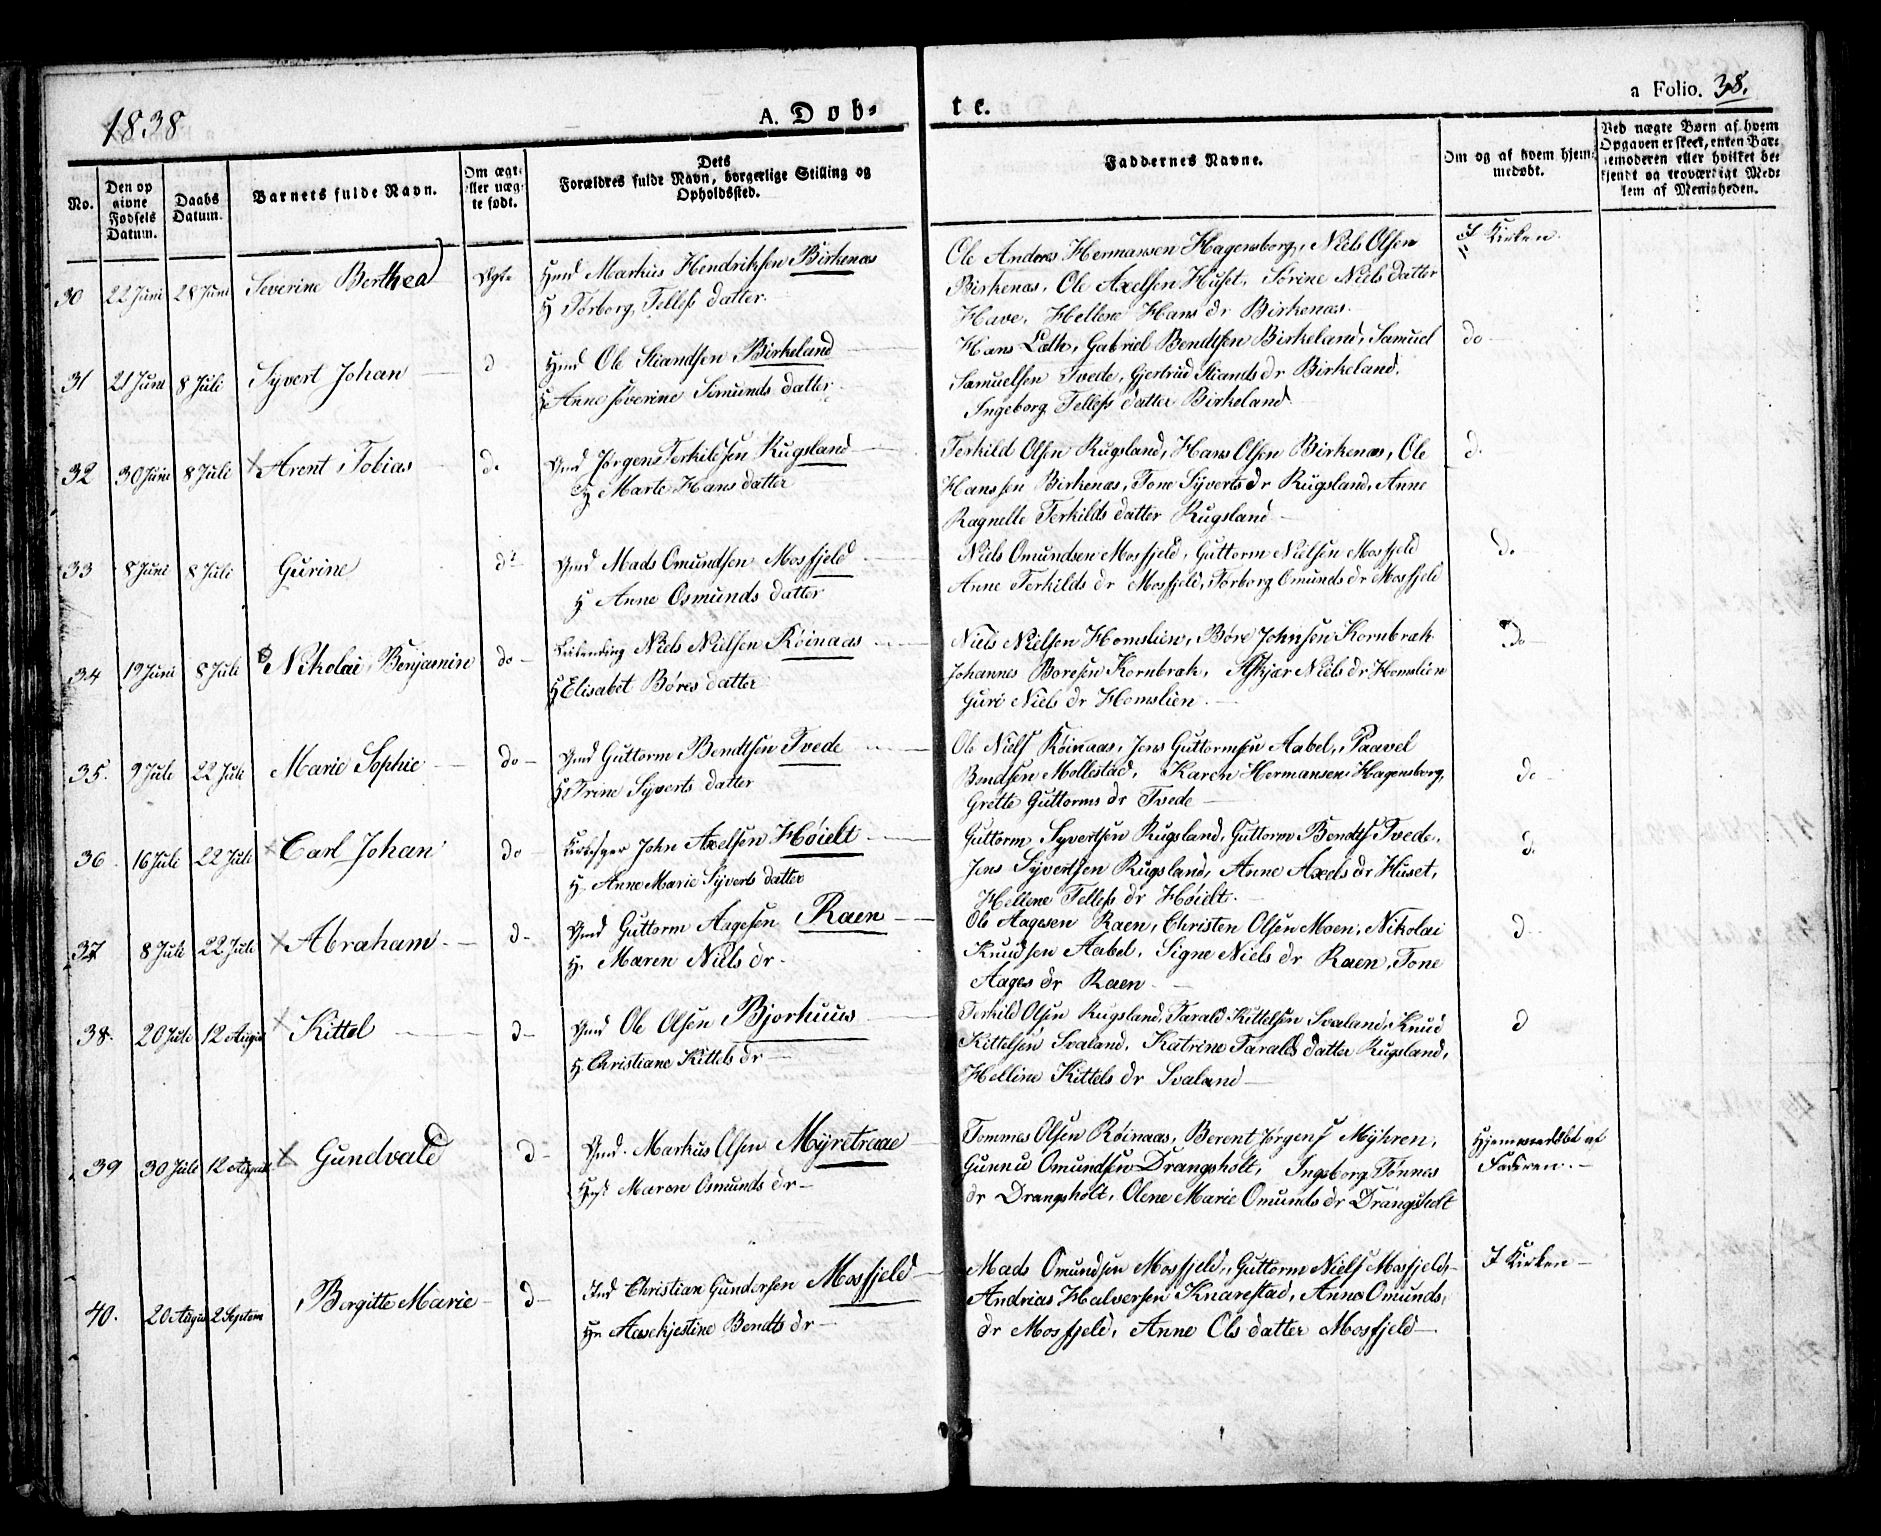 1838
A. Døb-
te.
a Folio. 38.
No.
Den op
givne
Fødsels
Datum.
Daabs
Datum.
Barnets fulde Navn.
Om ægte
eller uæg-
te født.
Dets
Forældres fulde Navn, borgerlige Stilling og
Opholdssted.
Faddernes Navne.
Om og af hvem hjem-
medøbt.
Ved uægte Børn af hvem
Opgaven er skeet, enten Bar-
nemoderen eller hvilket be-
kjendt og troværdigt Med-
lem af Menigheden.
30 22 Juni 28 Juni Severine Berthea Ægte Gmd Markus Hendriksen Birkenæs
H Torborg Tellefs datter
Ole Anders Hermansen Hagensborg, Niels Olsen
Birkenæs, Ole Axelsen Huset, Sørine Niels datter
Have, Hellene Hans dr Birkenæs.
I Kirken.
31 21 Juni 8 Juli Syvert Johan d Gmd Ole Stiandsen Birkeland
H Anne Severine Simunds datter
Hans Gabriel Bendtsen Birkeland, Samuel
Samuelsen Tvede, Gjertrud Stiands dr Birkeland,
Ingeborg Tellefs datter Birkeland
do
32 30 Juni 8 Juli Arent Tobias do Gmd Jørgen Terkildsen Rugsland
H Marte Hans datter
Terkild Olsen Rugsland, Hans Olsen Birkenæs, Ole
Hanssen Birkenæs, Tone Syverts dr Rugsland, Anne
Ragnelle Terkilds datter Rugsland
do
33 8 Juni 8 Juli Gurine do Gmd Mads Omundsen Mosfjeld
H Anne Osmunds datter
Niels Omundsen Mosfjeld, Guttorm Nielsen Mosfjeld
Anne Terkilds dr Mosfjeld, Torborg Omunds dr Mosfjeld
do
34 19 Juni 8 Juli Nikolai Benjamin do Leilending Niels Nielsen Røinaas
H Elisabet Børes datter
Niels Nielsen Homslien, Børe Johnsen Kornbrak
Johannes Boresen Kornbrak, Askjær Niels dr Homslien
Guri Niels dr Homslien.
Do
35. 9 Juli 22 Juli Marie Sophie do Gmd Guttorm Bendtsen Tvede
H Trine Syverts datter
Ole Niels Røinaas, Jens Guttormsen Aabel, Paavel
Bendsen Mollestad, Karen Hermansen Hagensborg,
Grette Guttorms dr Tvede
do
36. 16 Juli 22 Juli Carl Johan do Kirkesger John Axelsen Høiedt
H. Anne Marie Syverts datter
Guttorm Syvertsen Rugsland, Guttorm Bendts Tvede,
Jens Syvertsen Rugsland, Anne Axels dr Huset,
Hellene Tellefs dr Høiedt.
do
37 8 Juli 22 Juli Abraham d Gmd Guttorm Aagesen Raen
H. Maren Niels dr.
Ole Aagesen Raen, Christen Olsen Moen, Nikolai
Knudsen Aabel, Signe Niels dr Raen, Tone
Aages dr Raen
d
38. 20 Juli 12 August Kittel d Gmd Ole Olsen Bjorhuus
H. Christiane Kittels dr
Terkild Olsen Rugsland, Tarald Kittelsen Svaland, Knud
Kittelsen Svaland, Katrine Taralds datter Rugsland,
Helline Kittels dr Svaland
d
39 30 Juli 12 August Gundvald d Gmd. Markus Olsen Myretraae
Maren Osmunds dr
Tommes Olsen Røinaas, Berent Jørgens Myhren,
Gunnu Omundsen Drangsholt, Ingeborg Tønnes
dr Drangsholt, Olene Marie Omunds dr Drangsholt
Hjemmedøbt af
Faderen.
40. 20 August 2 Septem Birgitte Marie d Ind Christian Gundersen Mosfjeld
Hr Aasekjestine Bendts dr
Mads Omundsen Mosfjeld, Guttorm Niels Mosfjeld,
Andrias Halversen Knarestad, Anne Omunds
dr Mosfjeld, Anne Ols datter Mosfjeld
I Kirken